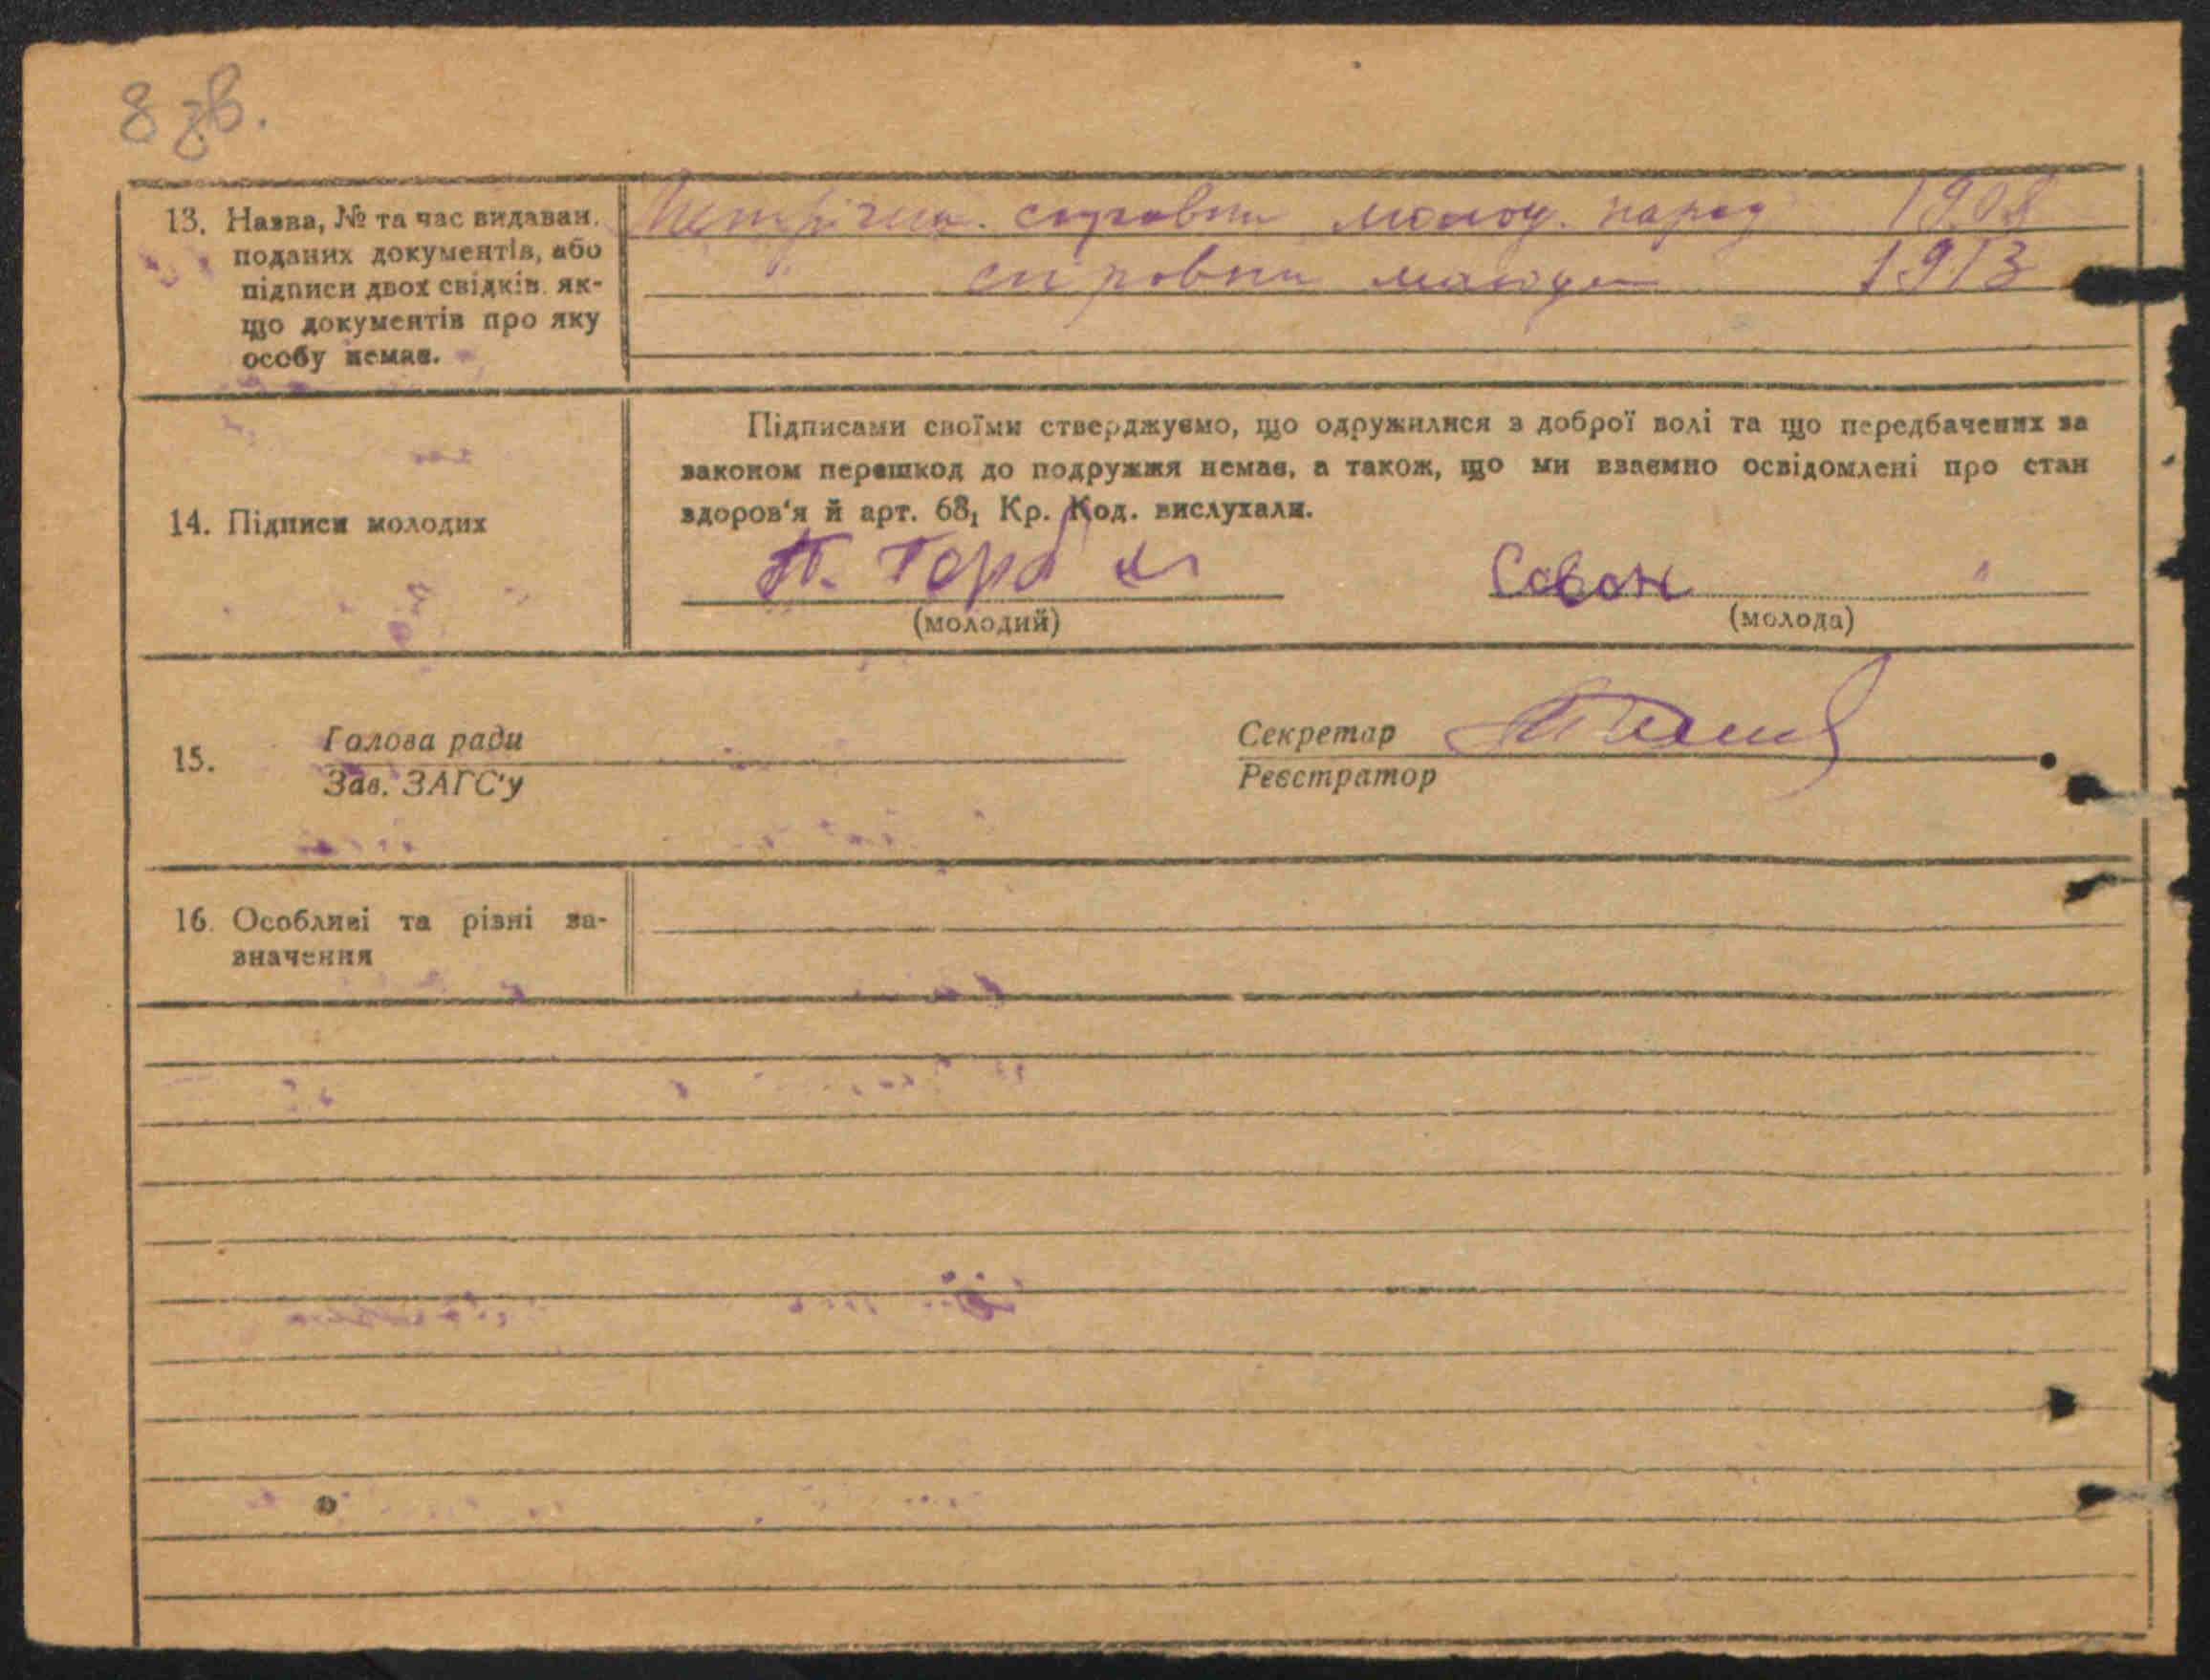 8 зв.
13. Назва, № та час видаван.
поданих документів, або
підписи двох свідків як-
що документів про яку
особу немає.
молод. народ 1908
1913
Підписами своїми стверджуємо, що одружилися з доброї волі та що передбачених за
законом перешкод до подружжя немає, а також, що ми взаємно освідомлені про стан
здоров'я й арт. 68₁ Кр. Код. вислухали.
14. Підписи молодих
П. Горб
Совон
(молодий) (молода)
15. Голова ради
Зав. ЗАГС'у
Секретар
Реєстратор
16. Особливі та різні за-
значення